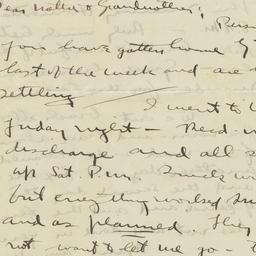 Dear Mother & Grandmother;
you have gotten home by
last of the week and are
settling
I went to
Friday night — Rec'd
discharge and all
up Sat. P.M.
but everything worked
and as planned. They
not want to let me go —